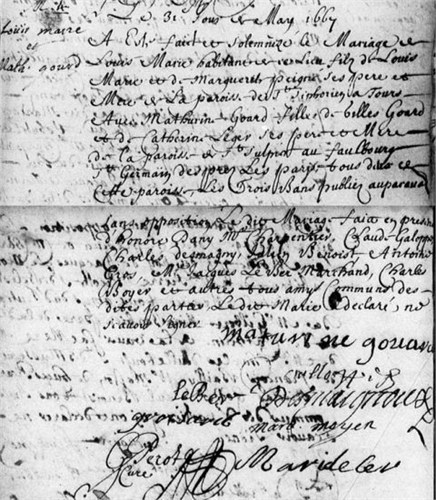 Le 31 Jour de May 1667
Louis marie
et
Math. gouard
A Esté faict et solemnizé le Mariage de
Louis Marie habitant de ce Lieu fils de Louis
Marie et de Marguerite peigne ses pere et
Mere de La paroisse de St Simphorien a Tours
Avec Mathurine Gouard fille de Gilles Gouard
et de Catherine Leger ses pere et Mere
de La paroisse de St Sulpice au faulbourg
St Germain des prez Les Paris tous deux de
cette paroisse Les Trois Bans publiez auparavant
sans opposition Le dit Mariage faict en presence
d'honoré Dany Me Charpentier, Claude Galoppe
Charles desmagny Julien Benoist, Antoine
Gros, Me Jacques Le Ber Marchand, Charles
Boyer et autres tous amys Communs des
dites parties Ledit Marie a declaré ne
scavoir signer
maturine gouard
LeBer
marc moyen
G Perot
Curé